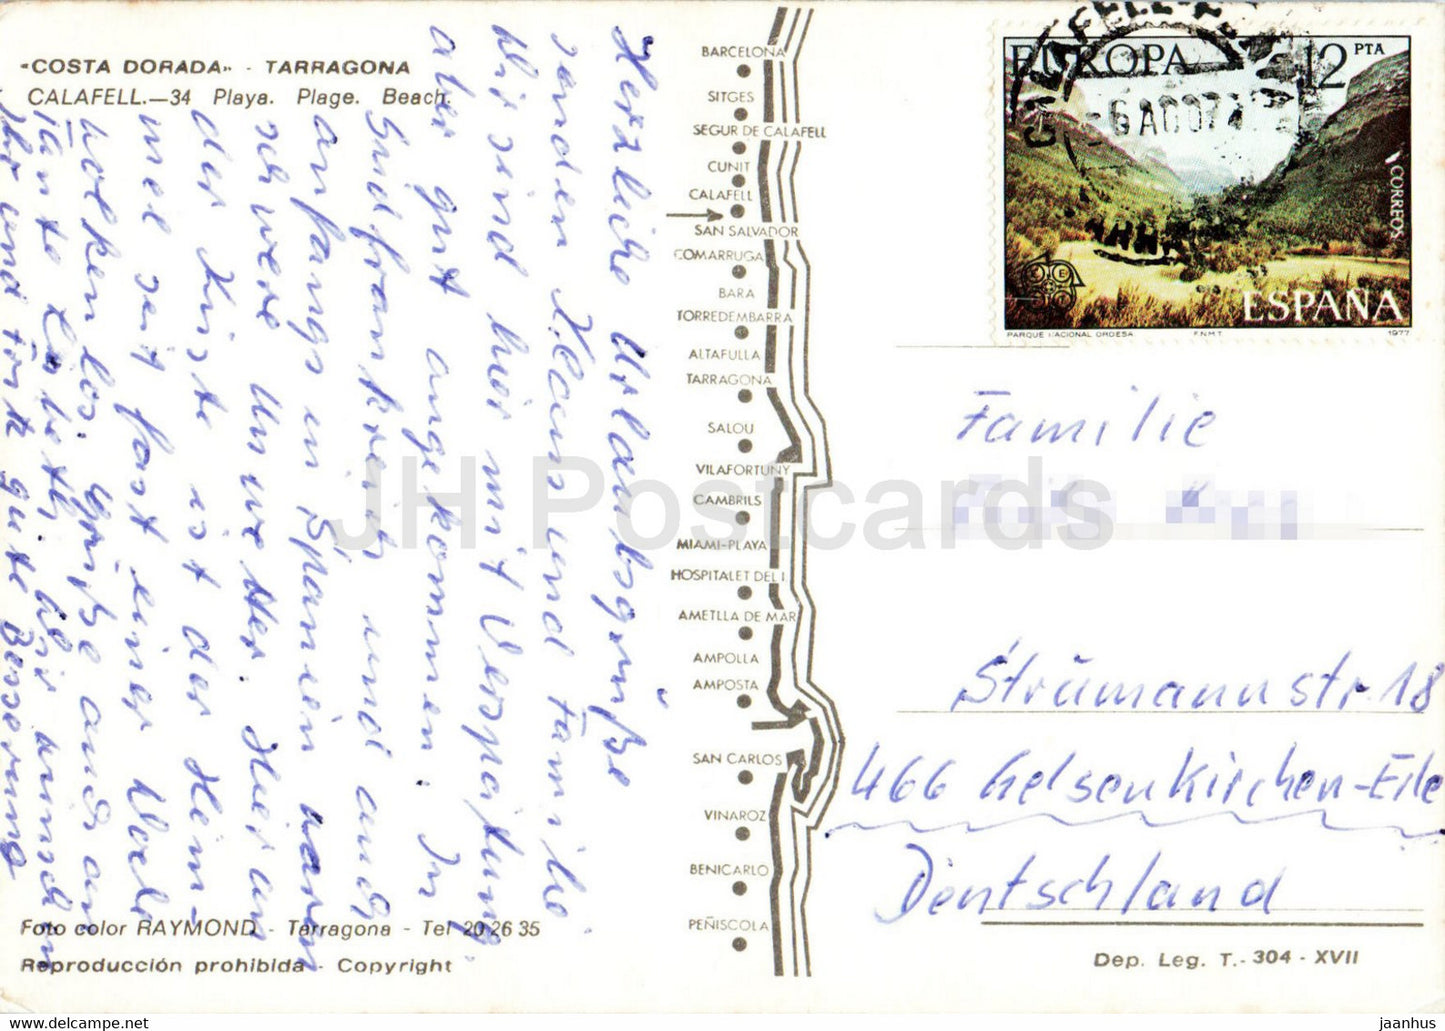 «COSTA DORADA» - TARRAGONA
CALAFELL.—34 Playa. Plage. Beach.
Herzliche Urlaubsgrüße
senden Klaus und Familie
Wir sind hier mit Verspätung
aber gut angekommen. In
Südfrankreich und auch
anfangs in Spanien waren
schwere Unwetter. Hier an
der Küste ist der Him-
mel seit fast einer Woche
wolkenlos. Grüße auch an
Tante Lisbeth. Wir wünschen
ihr und gute Besserung
BARCELONA
SITGES
SEGUR DE CALAFELL
CUNIT
CALAFELL
SAN SALVADOR
COMARRUGA
BARA
TORREDEMBARRA
ALTAFULLA
TARRAGONA
SALOU
VILAFORTUNY
CAMBRILS
MIAMI-PLAYA
HOSPITALET DEL I.
AMETLLA DE MAR
AMPOLLA
AMPOSTA
SAN CARLOS
VINAROZ
BENICARLO
PEÑISCOLA
EUROPA 12 PTA
CORREOS
ESPAÑA
PARQUE NACIONAL ORDESA F.N.M.T. 1977
Familie
Strümannstr. 18
466 Gelsenkirchen-Erle
Deutschland
Foto color RAYMOND - Tarragona - Tel 20 26 35
Reproducción prohibida - Copyright
Dep. Leg. T.-304-XVII
JH Postcards
www.jaanhus.ee/en
jaanhus